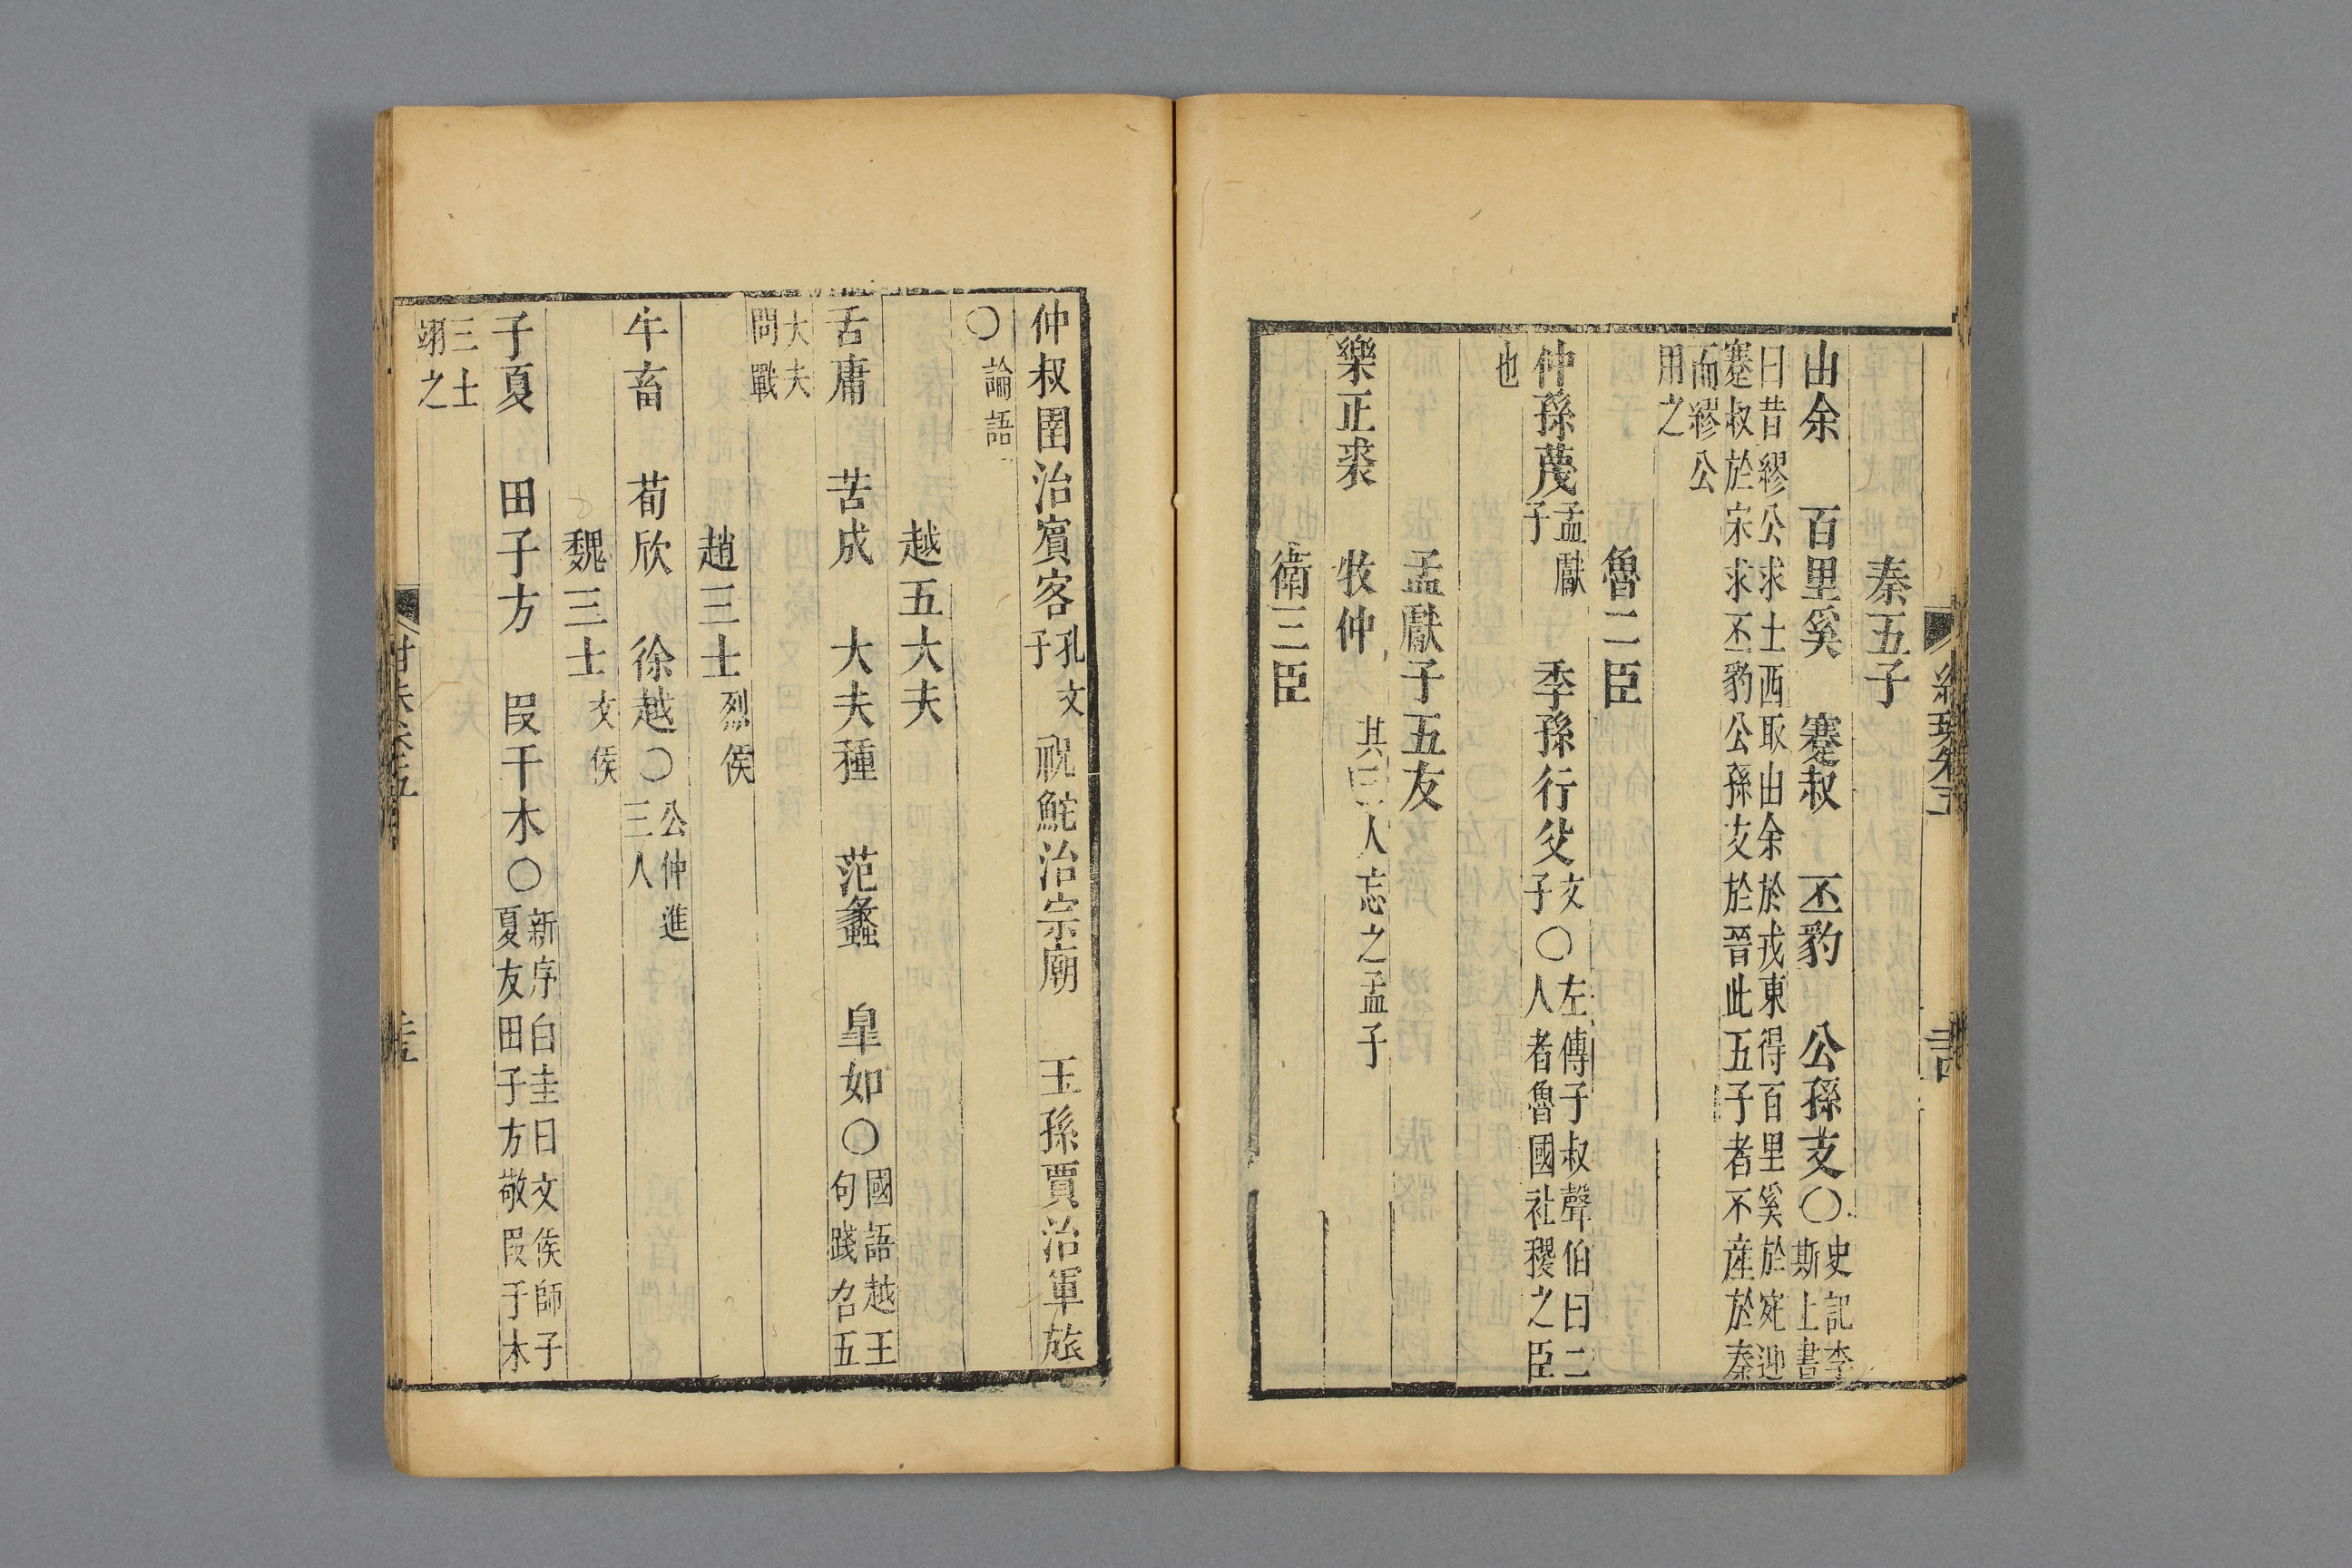 秦五子
由余　百里奚　蹇叔　丕豹　公孫支〇史記李斯上書
曰昔繆公求士西取由余於戎東得百里奚於宛迎
蹇叔於宋求丕豹公孫支於晉此五子者不産於秦
而繆公
用之
魯二臣
仲孫蔑孟獻子　季孫行父文子〇左傳子叔聲伯曰二人者魯國社稷之臣
也
孟獻子五友
樂正裘　牧仲　其三人忘之孟子
衛三臣
仲叔圉治賓客孔文子　祝鮀治宗廟　王孫賈治軍旅
〇論語
越五大夫
舌庸　苦成　大夫種　范蠡　皐如〇國語越王句踐召五
大夫
問戰
趙三士烈侯
牛畜　荀欣　徐越〇公仲進三人
魏三士文侯
子夏　田子方　段干木〇新序白圭曰文侯師子夏友田子方敬段干木
三士
翊之